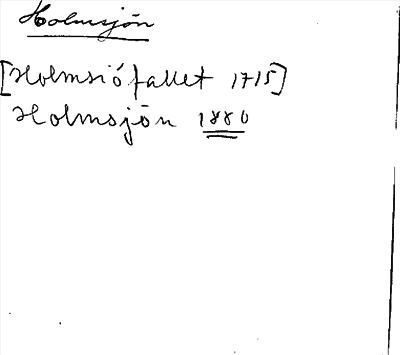 Holmsjön
[Holmsiöfallet 1715]
Holmsjön 1880